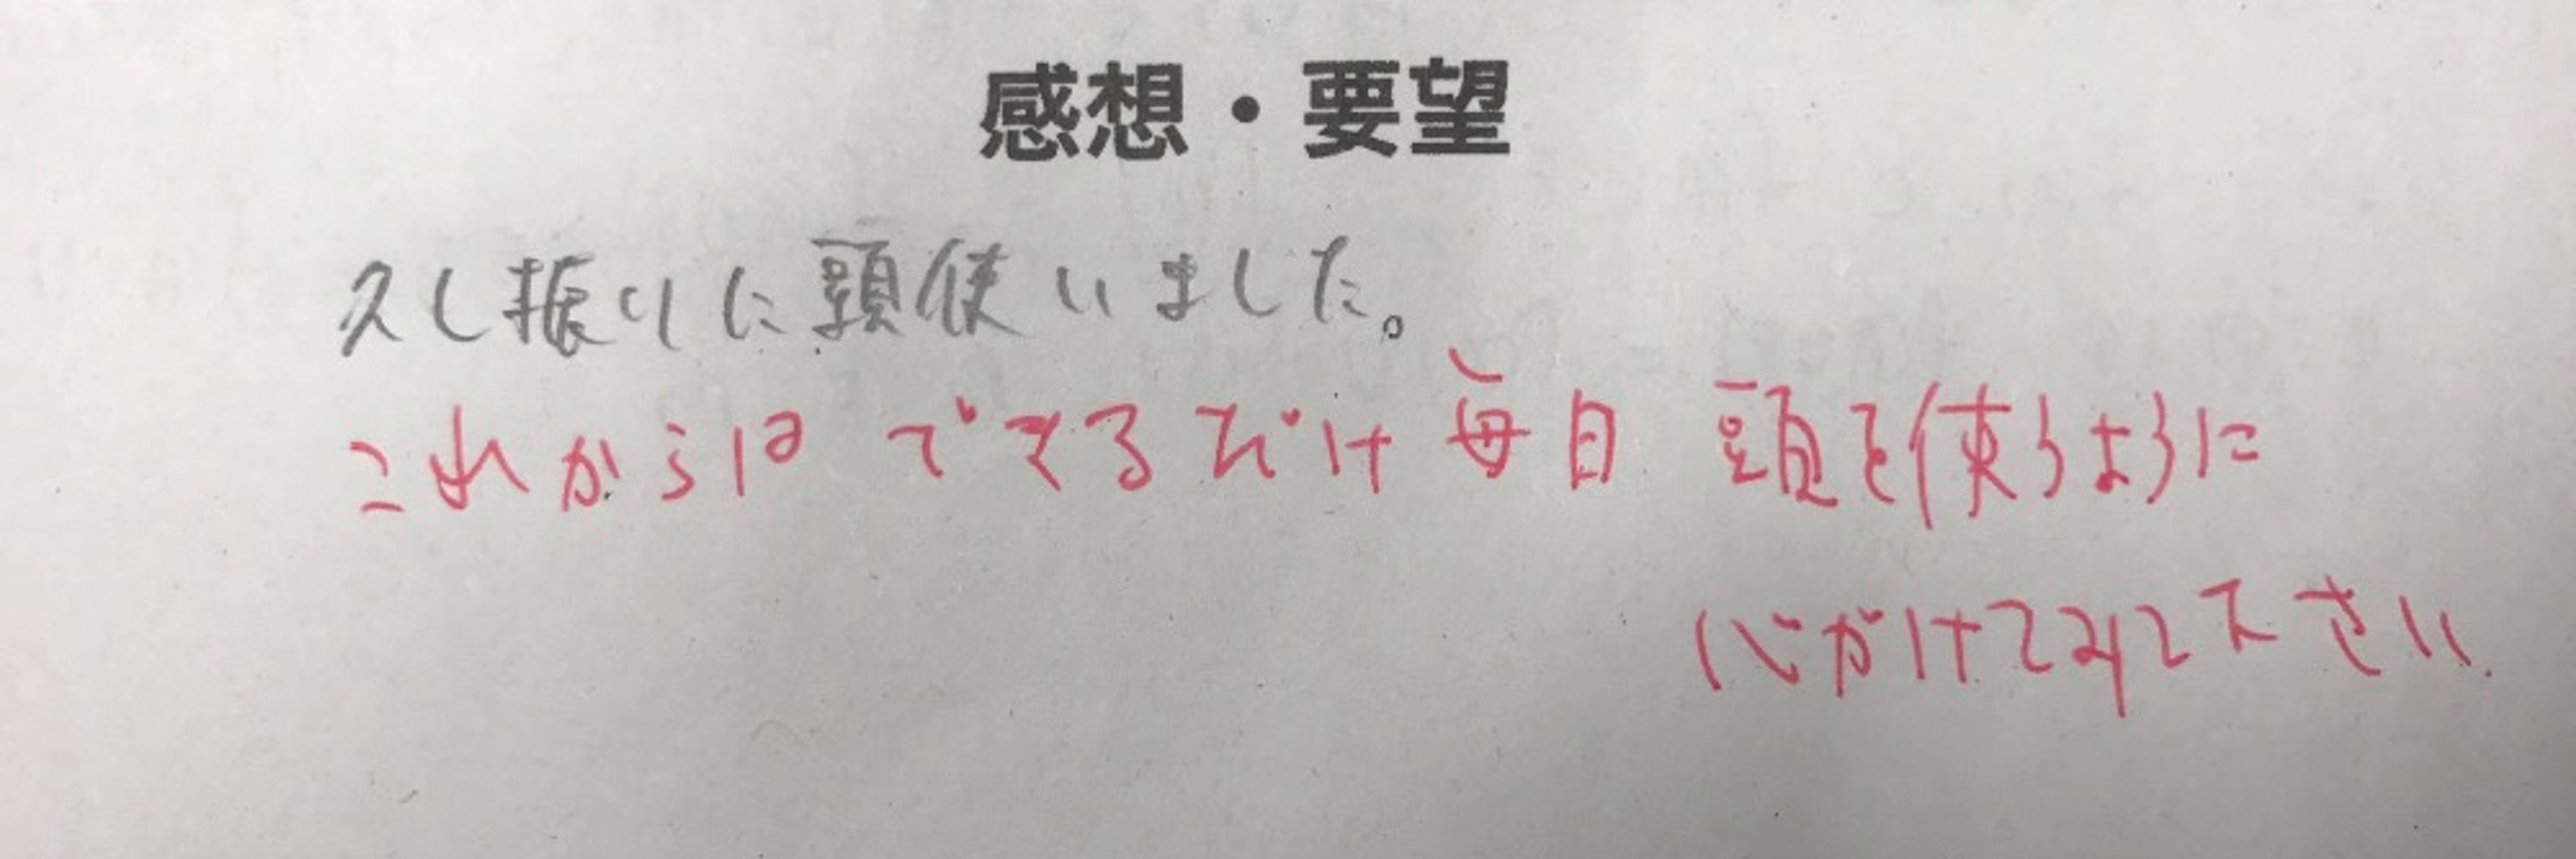 感想・要望
久し振りに頭使いました。
これからは できるだけ 毎日 頭を使うように
心がけてみて下さい